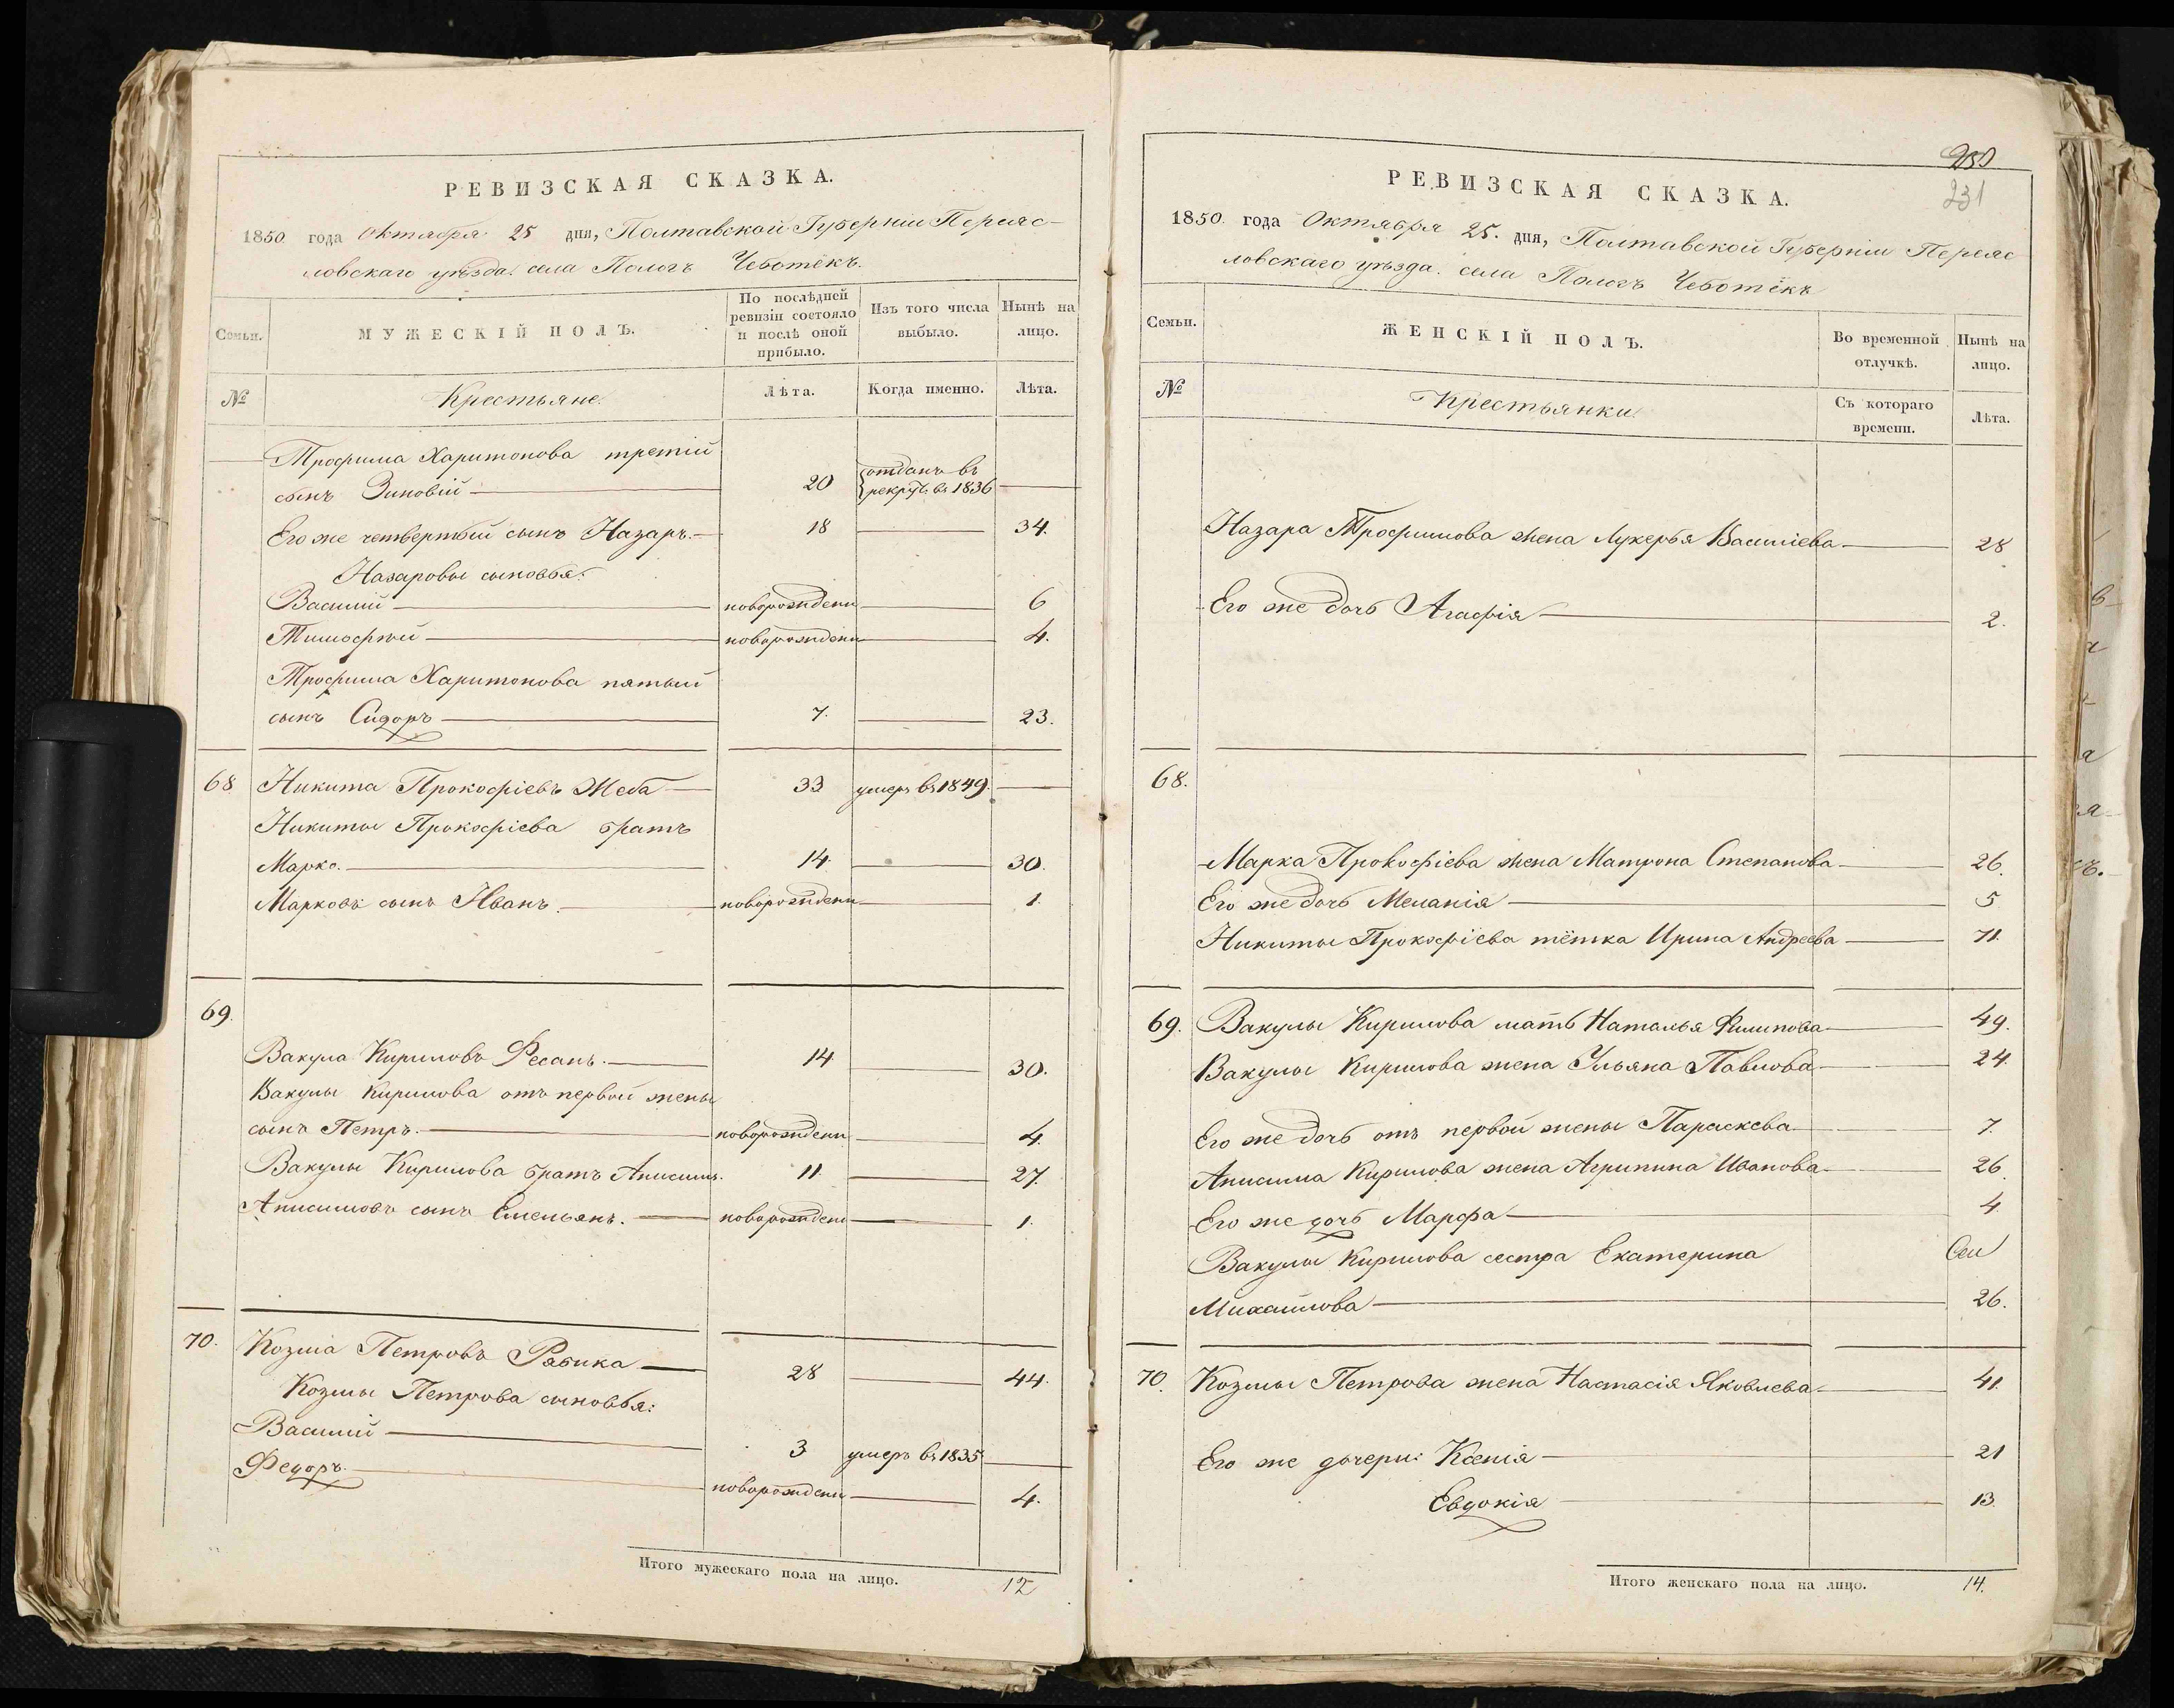 РЕВИЗСКАЯ СКАЗКА.
1850 года Октября 25 дня, Полтавской Губерніи Переяс-
ловскаго уѣзда. села Пологъ Чеботёкъ.
Семьи.
МУЖЕСКІЙ ПОЛЪ.
По послѣдней ревизіи состояло и послѣ оной прибыло.
Изъ того числа выбыло.
Нынѣ на лицо.
№
Крестьяне.
Лѣта.
Когда именно.
Лѣта.
Трофима Харитонова третій
сынъ Зиновій 20 отданъ въ рекруты въ 1836
Его же четвертый сынъ Назаръ. 18 34.
Назаровы сыновья:
Василій новорожденн 6
Тимофѣй новорожденн 4.
Трофима Харитонова пятый
сынъ Сидоръ 7. 23.
68 Никита Прокофіевъ Жеба 33 умеръ въ 1849.
Никиты Прокофіева братъ
Марко. 14. 30.
Марковъ сынъ Иванъ. новорожденн 1.
69.
Вакула Кириловъ Фесанъ. 14 30.
Вакулы Кирилова отъ первой жены
сынъ Петръ. новорожденн 4.
Вакулы Кирилова братъ Анисимъ. 11. 27.
Анисимовъ сынъ Емельянъ. новорожден 1.
70. Козма Петровъ Рябика 28 44.
Козмы Петрова сыновья:
Василій 3 умеръ въ 1835
Федоръ. новорожденн 4.
Итого мужескаго пола на лицо. 12
230
231
РЕВИЗСКАЯ СКАЗКА.
1850. года Октября 25. дня, Полтавской Губерніи Переяс
ловскаго уѣзда. села Пологъ Чеботёкъ
Семьи.
ЖЕНСКІЙ ПОЛЪ.
Во временной отлучкѣ.
Нынѣ на лицо.
№
Крестьянки.
Съ котораго времени.
Лѣта.
Назара Трофимова жена Лукерья Василіева 28
Его же дочь Агафія 2.
68.
Марка Прокофіева жена Матрона Степанова 26.
Его же дочь Меланія 5
Никиты Прокофіева тётка Ирина Андреева 71.
69. Вакулы Кирилова мать Наталья Филипова 49.
Вакулы Кирилова жена Ульяна Павлова 24.
Его же дочь отъ первой жены Параскева 7.
Анисима Кирилова жена Агрипина Иванова 26.
Его же дочь Марфа 4.
Вакулы Кирилова сестра Екатерина
Михайлова 26.
70. Козмы Петрова жена Настасія Яковлева 41.
Его же дочери: Ксенія 21
Евдокія 13.
Итого женскаго пола на лицо. 14.